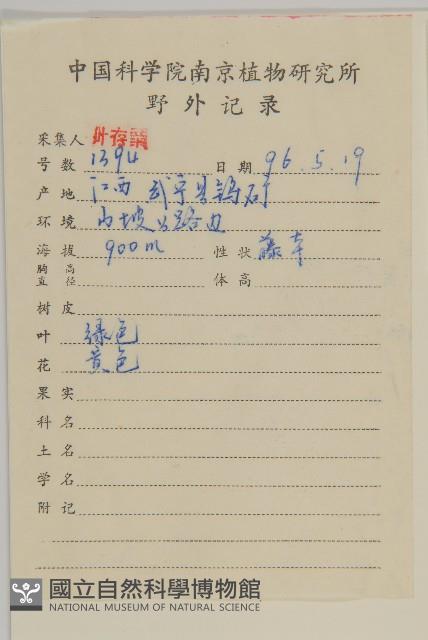 中国科学院南京植物研究所
野外记录
采集人 叶存粟
号数 1394 日期 96.5.19
产地 江西 武宁县钨矿
环境 山坡公路边
海拔 900m 性状 藤本
胸高直径 体高
树皮
叶 绿色
花 黄色
果实
科名
土名
学名
附记
國立自然科學博物館
NATIONAL MUSEUM OF NATURAL SCIENCE